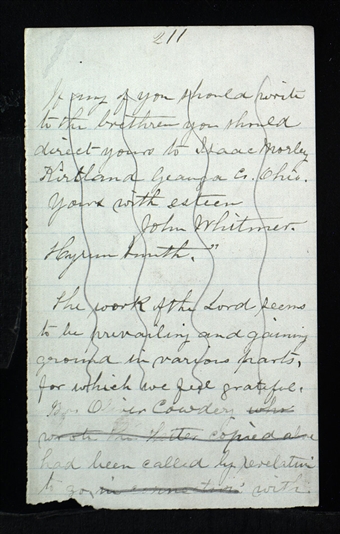 211
If any of you should write
to the brethren you should
direct yours to Isaac Morley
Kirtland Geauga Co. Ohio.
Yours with esteem
John Whitmer.
Hyrum Smith."
The work of the Lord seems
to be prevailing and gaining
ground in various parts,
for which we feel grateful.
Oliver Cowdery who
wrote the letter copied above
had been called by revelation
to go in connection with